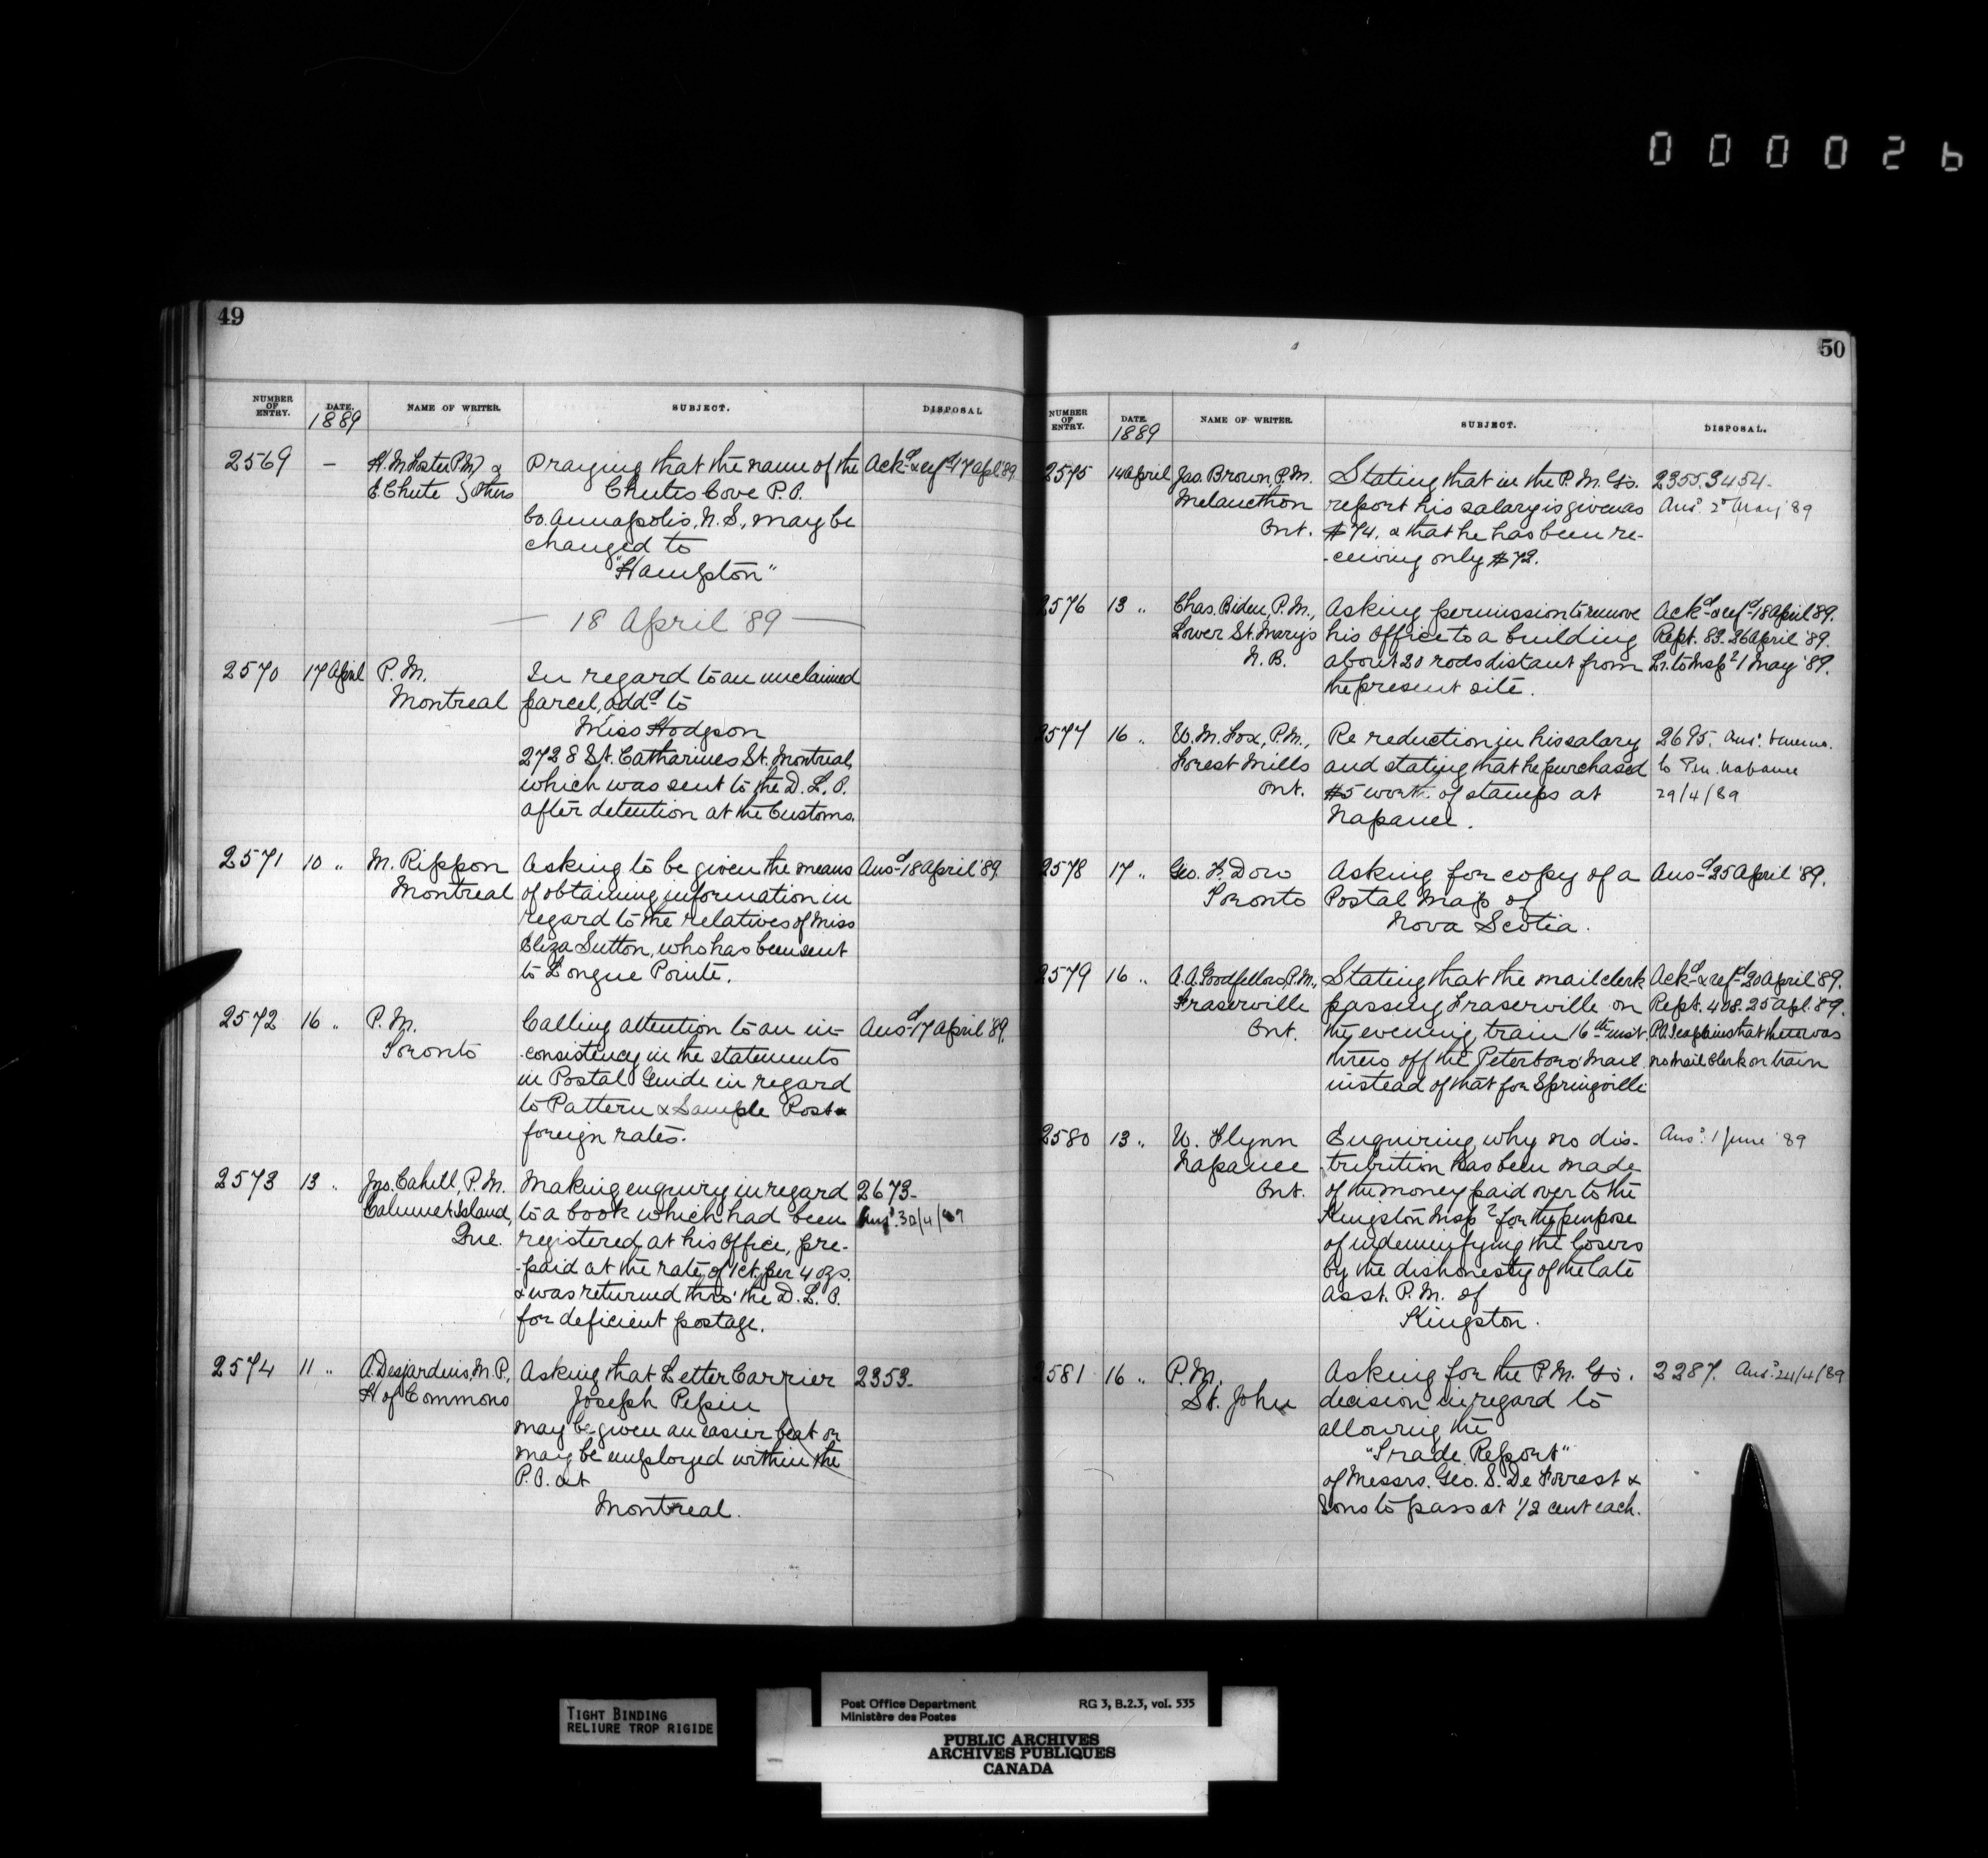 000026
49
NUMBER OF ENTRY. DATE. NAME OF WRITER. SUBJECT. DISPOSAL
1889
2569 — H. M. Foster P.M. & Praying that the name of the Ackd & refd 17 apl '89
E. Chute & others Chutes Cove P.O.
Co. Annapolis, N.S., may be
changed to
"Hampton"
— 18 April '89 —
2570 17 April P. M. In regard to an unclaimed
Montreal parcel, addd to
Miss Hodgson
2728 St. Catharines St. Montreal,
which was sent to the D. L. O.
after detention at the Customs.
2571 10 " M. Rippon Asking to be given the means Ansd 18 April '89
Montreal of obtaining information in
regard to the relatives of Miss
Eliza Sutton, who has been sent
to Longue Pointe.
2572 16 " P. M. Calling attention to an in- Ansd 17 April '89.
Toronto -consistency in the statements
in Postal Guide in regard
to Pattern & Sample Post &
foreign rates.
2573 13 " Jno. Cahill, P. M. Making enquiry in regard 2673-
Calumet Island, to a book which had been Ansd 30/4/89
Que. registered at his Office, pre-
-paid at the rate of 1ct. per 4 ozs.
& was returned thro' the D. L. O.
for deficient postage.
2574 11 " A. Desjardins, M. P., Asking that Letter Carrier 2353-
H of Commons Joseph Pepin
may be given an easier beat or
may be employed within the
P. O. at
Montreal.
50
NUMBER OF ENTRY. DATE. NAME OF WRITER. SUBJECT. DISPOSAL.
1889
2575 14 April Jas. Brown, P. M. Stating that in the P. M. Gs. 2355.3454-
Melancthon report his salary is given as Ansd 2d May '89
Ont. $74. & that he has been re-
-ceiving only $72.
2576 13 " Chas. Biden, P. M., Asking permission to remove Ackd & refd 18 April '89.
Lower St. Mary's his Office to a building Rept. 83. 26 April '89.
N. B. about 20 rods distant from Lr. to Inspr 1 May '89.
the present site.
2577 16 " W. M. Fox, P. M., Re reduction in his salary 2695. Ansd
Forest Mills and stating that he purchased to P.M. Napanee
Ont. $5 worth of stamps at 29/4/89
Napanee.
2578 17 " Geo. F. Dow Asking for copy of a Ansd 25 April '89.
Toronto Postal Map of
Nova Scotia.
2579 16 " A. A. Goodfellow, P. M., Stating that the mail clerk Ackd & refd 20 April '89.
Fraserville passing Fraserville on Rept. 418. 25 Apl. '89.
Ont. the evening train 16th inst. P.O.I. explains that there was
threw off the Peterboro' Mail no Mail Clerk on train
instead of that for Springville
2580 13 " W. Flynn Enquiring why no dis- Ansd 1 June '89
Napanee -tribution has been made
Ont. of the money paid over to the
Kingston Inspr for the purpose
of indemnifying the losers
by the dishonesty of the late
Asst. P. M. of
Kingston.
2581 16 " P. M. Asking for the P. M. Gs. 2287. Ansd 24/4/89
St. John decision in regard to
allowing the
"Trade Report"
of Messrs. Geo. S. De Forrest &
Sons to pass at 1/2 cent each.
TIGHT BINDING
RELIURE TROP RIGIDE
Post Office Department RG 3, B.2.3, vol. 535
Ministère des Postes
PUBLIC ARCHIVES
ARCHIVES PUBLIQUES
CANADA